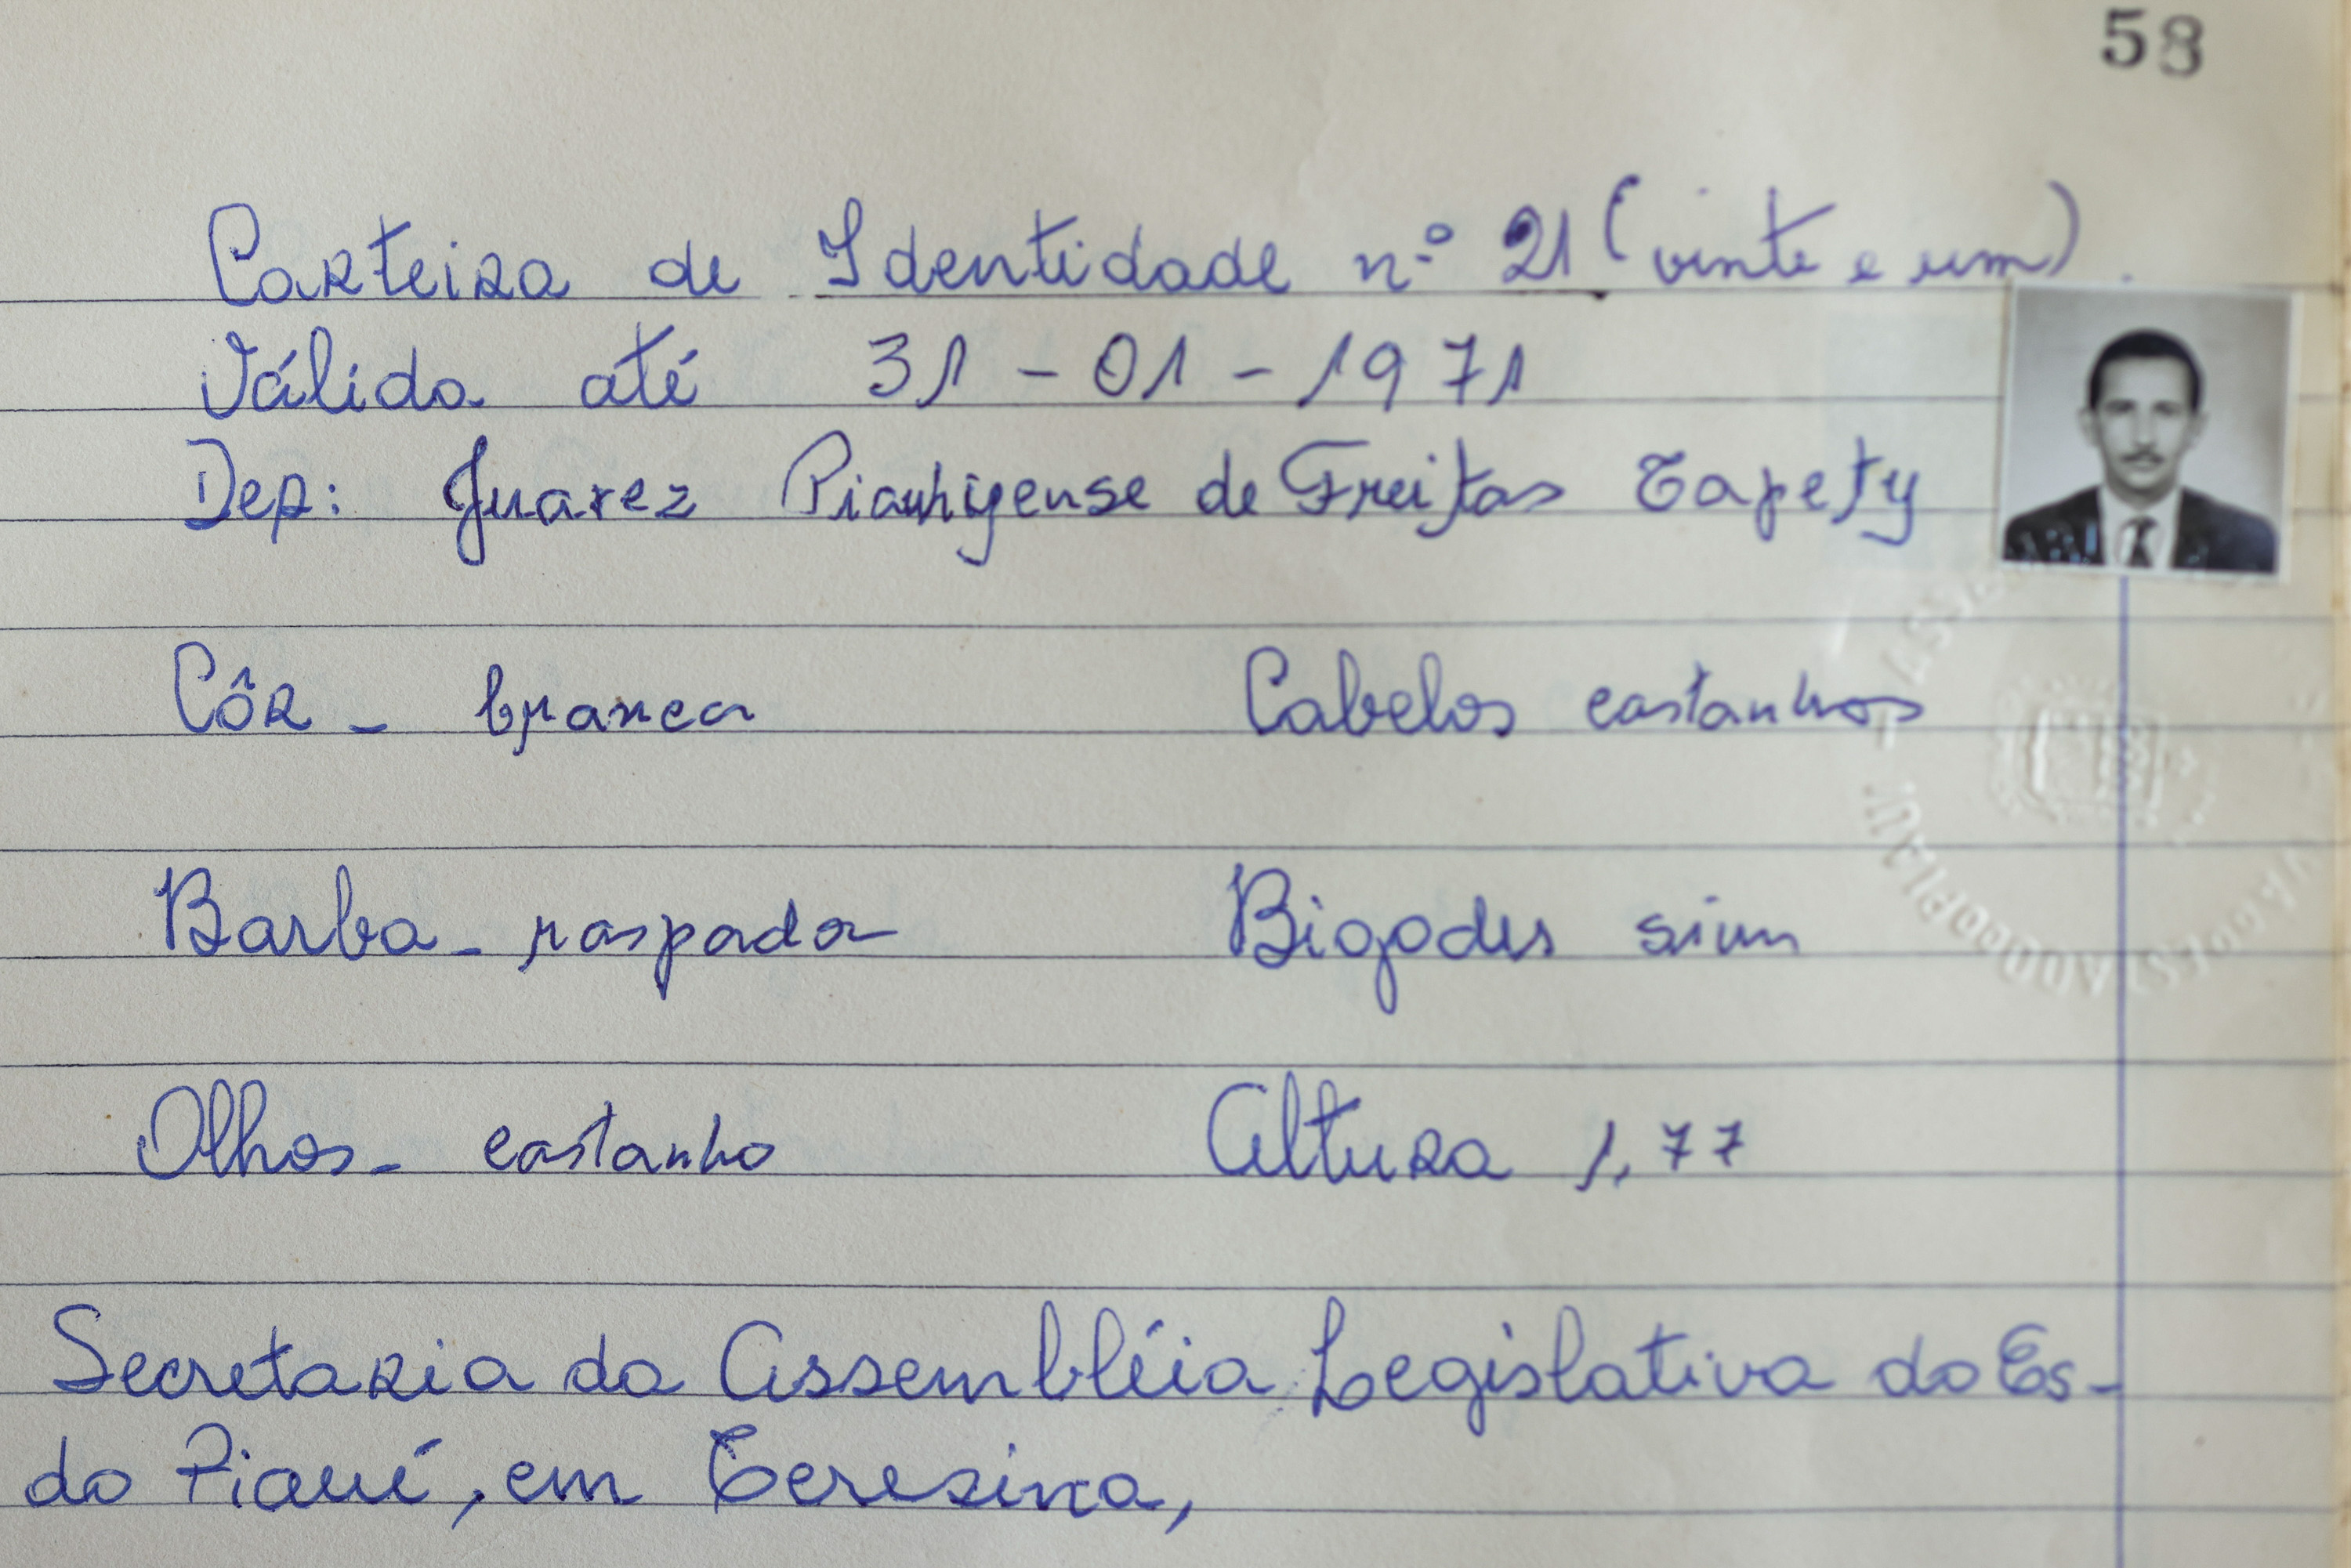 58
Carteira de Identidade n.º 21 (vinte e um).
Válida até 31-01-1971
Dep: Juarez Piauhyense de Freitas Tapety
Côr - branca Cabelos castanhos
Barba - raspada Bigodes sim
Olhos - castanho Altura 1,77
Secretaria da Assembléia Legislativa do Es-
do Piauí, em Teresina,
ESTADO DO PIAUÍ